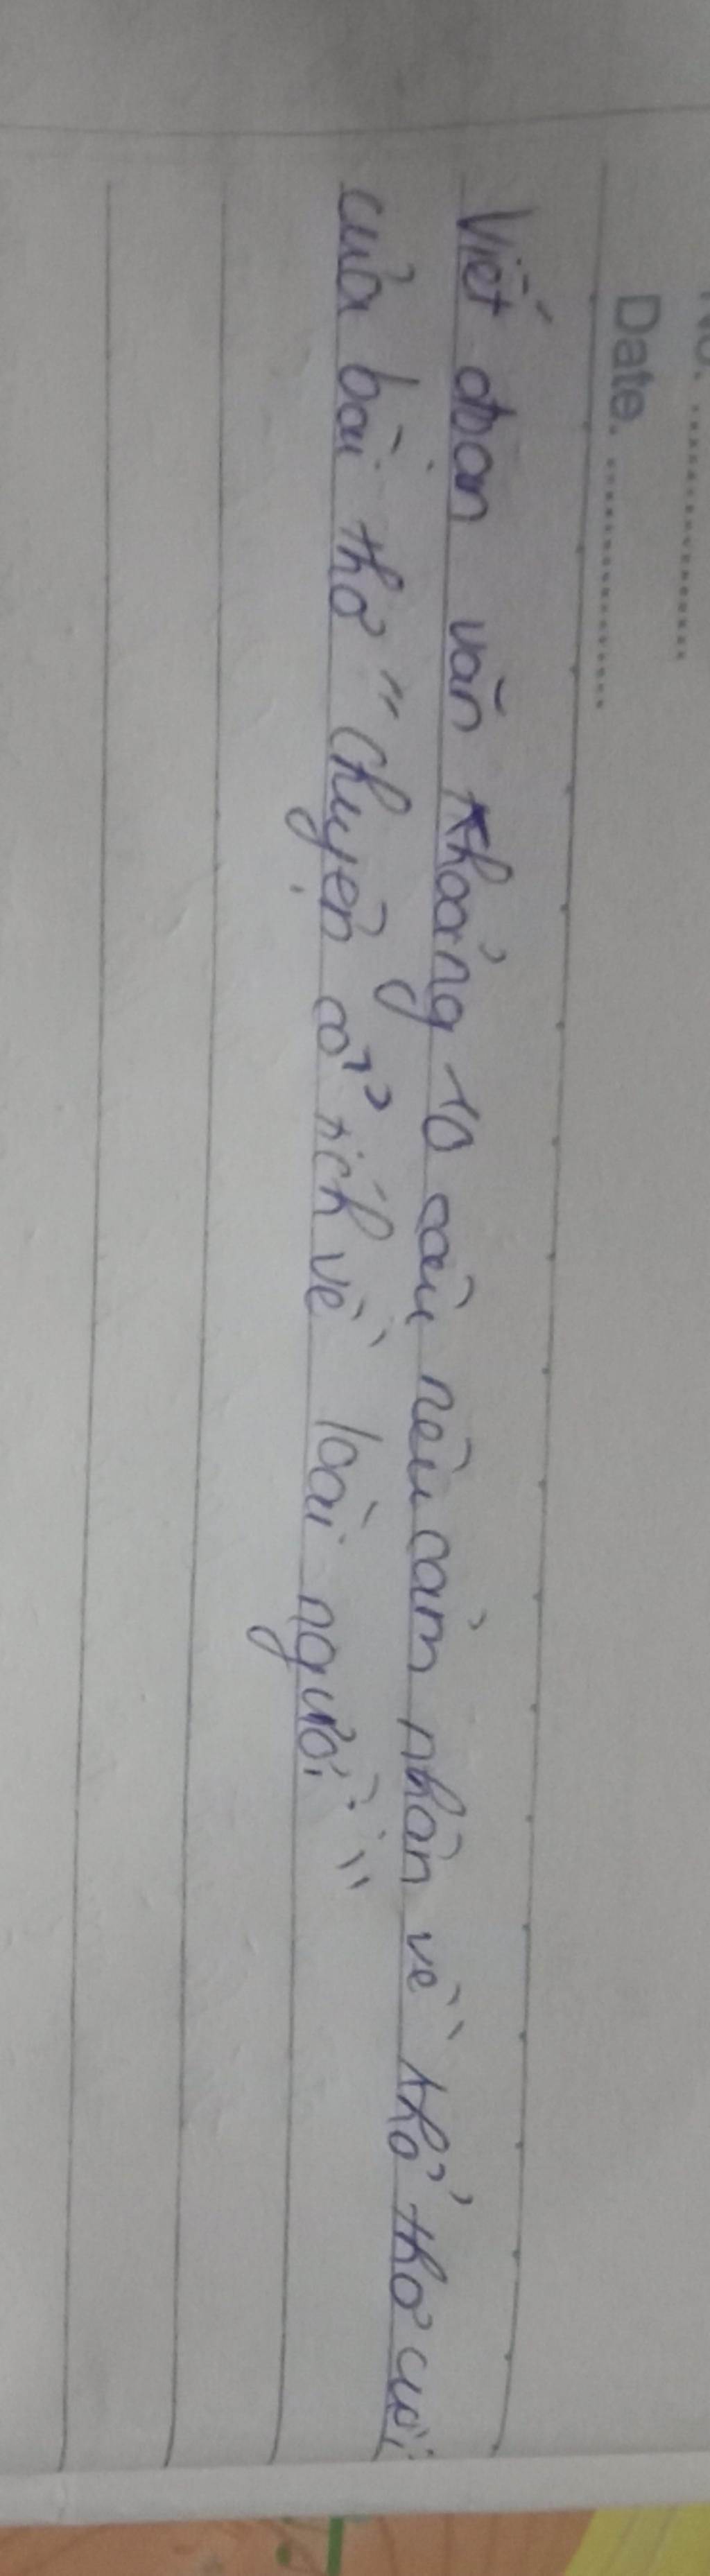 No. ............
Date. ............
Viết đoạn văn khoảng 10 câu nêu cảm nhận về khổ thơ cuối
của bài thơ "Chuyện cổ tích về loài người"